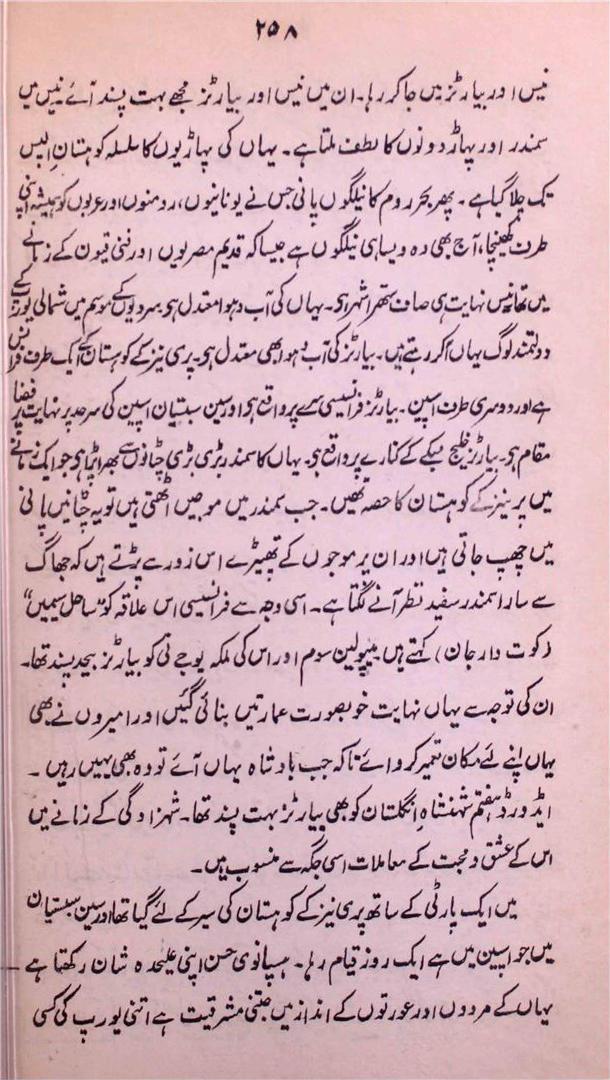 ۲۵۸
نیس اور بیارٹز میں جا کر رہا۔ ان میں نیس اور بیارٹز مجھے بہت پسند آئے۔ نیس میں
سمندر اور پہاڑ دونوں کا لطف ملتا ہے۔ یہاں کی پہاڑیوں کا سلسلہ کوہستان الپس
تک چلا گیا ہے۔ پھر بحر روم کا نیلگوں پانی جس نے یونانیوں، رومنوں اور عربوں کو ہمیشہ اپنی
طرف کھینچا، آج بھی وہ ویسا ہی نیلگوں ہے جیسا کہ قدیم مصریوں اور فنی قیون کے زمانے
میں تھا۔ نیس نہایت ہی صاف ستھرا شہر ہو۔ یہاں کی آب و ہوا معتدل ہو۔ سردیوں کے موسم میں شمالی یورپ کے
دولتمند لوگ یہاں آکر رہتے ہیں۔ بیارٹز کی آب و ہوا بھی معتدل ہو۔ پری نیز کے کوہستان کے ایک طرف فرانس
ہے اور دوسری طرف اسپین۔ بیارٹز فرانسیسی سرے پر واقع ہو اور سین سبستیان اسپین کی سرحد پر نہایت پر فضا
مقام ہو۔ بیارٹز خلیج بسکے کے کنارے پر واقع ہو۔ یہاں کا سمندر بڑی بڑی چٹانوں سے بھرا پڑا ہو جو ایک زمانے
میں پرینیز کے کوہستان کا حصہ تھیں۔ جب سمندر میں موجیں اٹھتی ہیں تو یہ چٹانیں پانی
میں چھپ جاتی ہیں اور ان پر موجوں کے تھپیڑے اس زور سے پڑتے ہیں کہ جھاگ
سے سارا سمندر سفید نظر آنے لگتا ہے۔ اسی وجہ سے فرانسیسی اس علاقہ کو "ساحل سیمیں"
(کوت دارجان) کہتے ہیں۔ نیپولین سوم اور اس کی ملکہ یوجے نی کو بیارٹز بیحد پسند تھا۔
ان کی توجہ سے یہاں نہایت خوبصورت عمارتیں بنائی گئیں اور امیروں نے بھی
یہاں اپنے لئے مکان تعمیر کروائے تاکہ جب بادشاہ یہاں آئے تو وہ بھی یہیں رہیں۔
ایڈورڈ ہفتم شہنشاہِ انگلستان کو بھی بیارٹز بہت پسند تھا۔ شہزادگی کے زمانے میں
اس کے عشق و محبت کے معاملات اسی جگہ سے منسوب ہیں۔
میں ایک پارٹی کے ساتھ پری نیز کے کوہستان کی سیر کے لئے گیا تھا اور سین سبستیان
میں جو اسپین میں ہے ایک روز قیام رہا۔ ہسپانوی حسن اپنی علیحدہ شان رکھتا ہے
یہاں کے مردوں اور عورتوں کے انداز میں جتنی مشرقیت ہے اتنی یورپ کی کسی